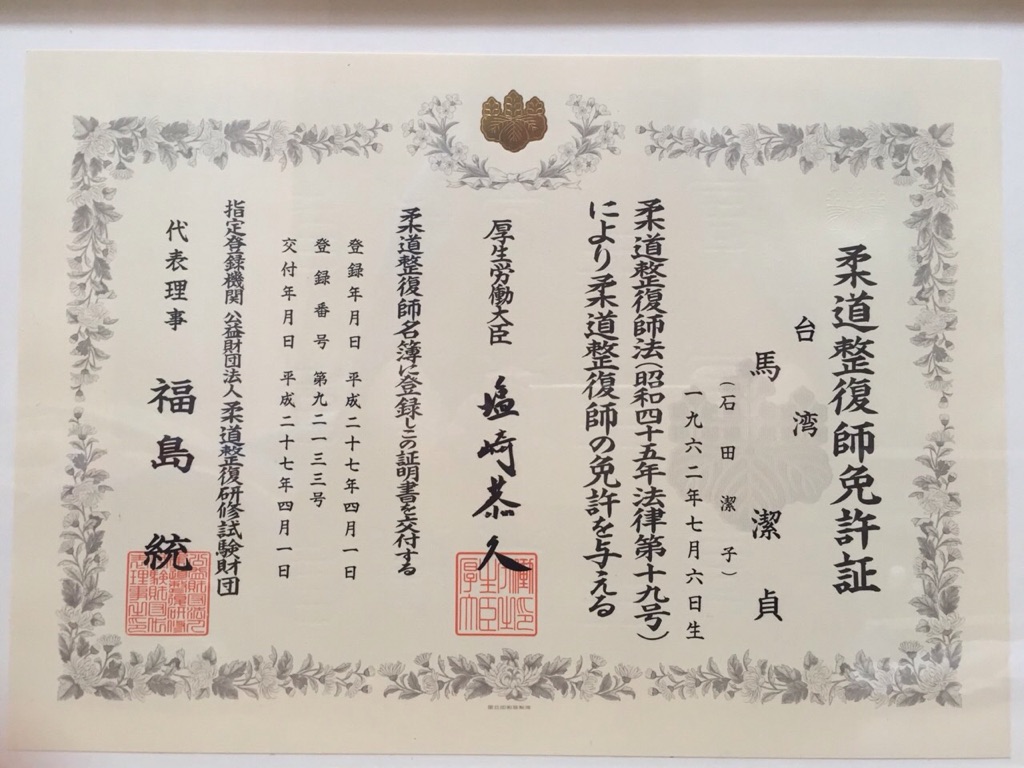 柔道整復師免許証
台湾
馬潔貞
（石田潔子）
一九六二年七月六日生
柔道整復師法（昭和四十五年法律第十九号）
により柔道整復師の免許を与える
厚生労働大臣 塩崎恭久
柔道整復師名簿に登録しこの証明書を交付する
登録年月日 平成二十七年四月一日
登録番号 第九二一三三号
交付年月日 平成二十七年四月一日
指定登録機関 公益財団法人 柔道整復研修試験財団
代表理事 福島統